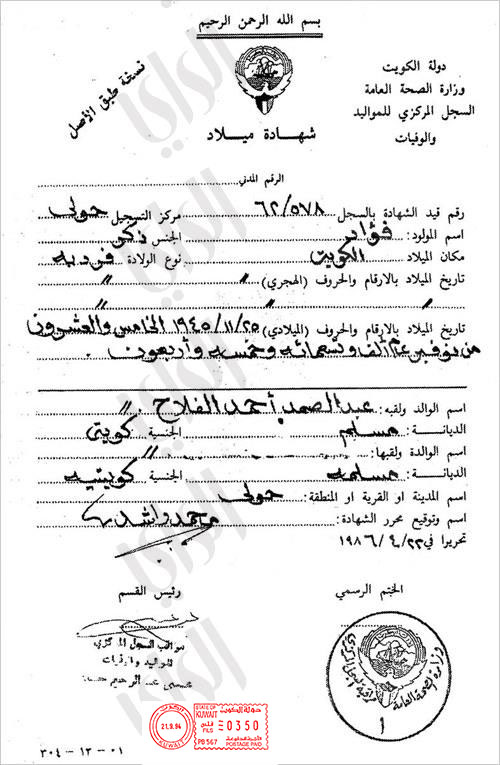 بسم الله الرحمن الرحيم
نسخة طبق الأصل
دولة الكويت
وزارة الصحة العامة
السجل المركزي للمواليد
والوفيات
شهادة ميلاد
الرقم المدني
رقم قيد الشهادة بالسجل ٦٢/٥٧٨ مركز التسجيل حولى
اسم المولود: فؤاد الجنس ذكر
مكان الميلاد الكويت نوع الولادة فرديه
تاريخ الميلاد بالارقام والحروف (الهجري) " "
" "
تاريخ الميلاد بالارقام والحروف (الميلادي) ١٩٤٥/١١/٢٥ الخامس والعشرون
من نوفمبر عام ألف وتسعمائه وخمسه وأربعون
اسم الوالد ولقبه: عبدالصمد أحمد الفلاح "
الديانة: مسلم الجنسية كويتى
اسم الوالدة ولقبها: "
الديانة: مسلمه الجنسية كويتيه
اسم المدينة او القرية او المنطقة: حولى
اسم وتوقيع محرر الشهادة: محمد راشد
تحريرا في ١٩٨٦/٤/٢٢
الختم الرسمي
رئيس القسم
مراقب السجل المركزي
للمواليد والوفيات
وزارة الصحة العامة
١
الكويت
21.9.94
KUWAIT
STATE OF KUWAIT
دولة الكويت
فلس
FILS
0350
PB567
POSTAGE PAID
٣٠٤-١٢-٠١
الراي